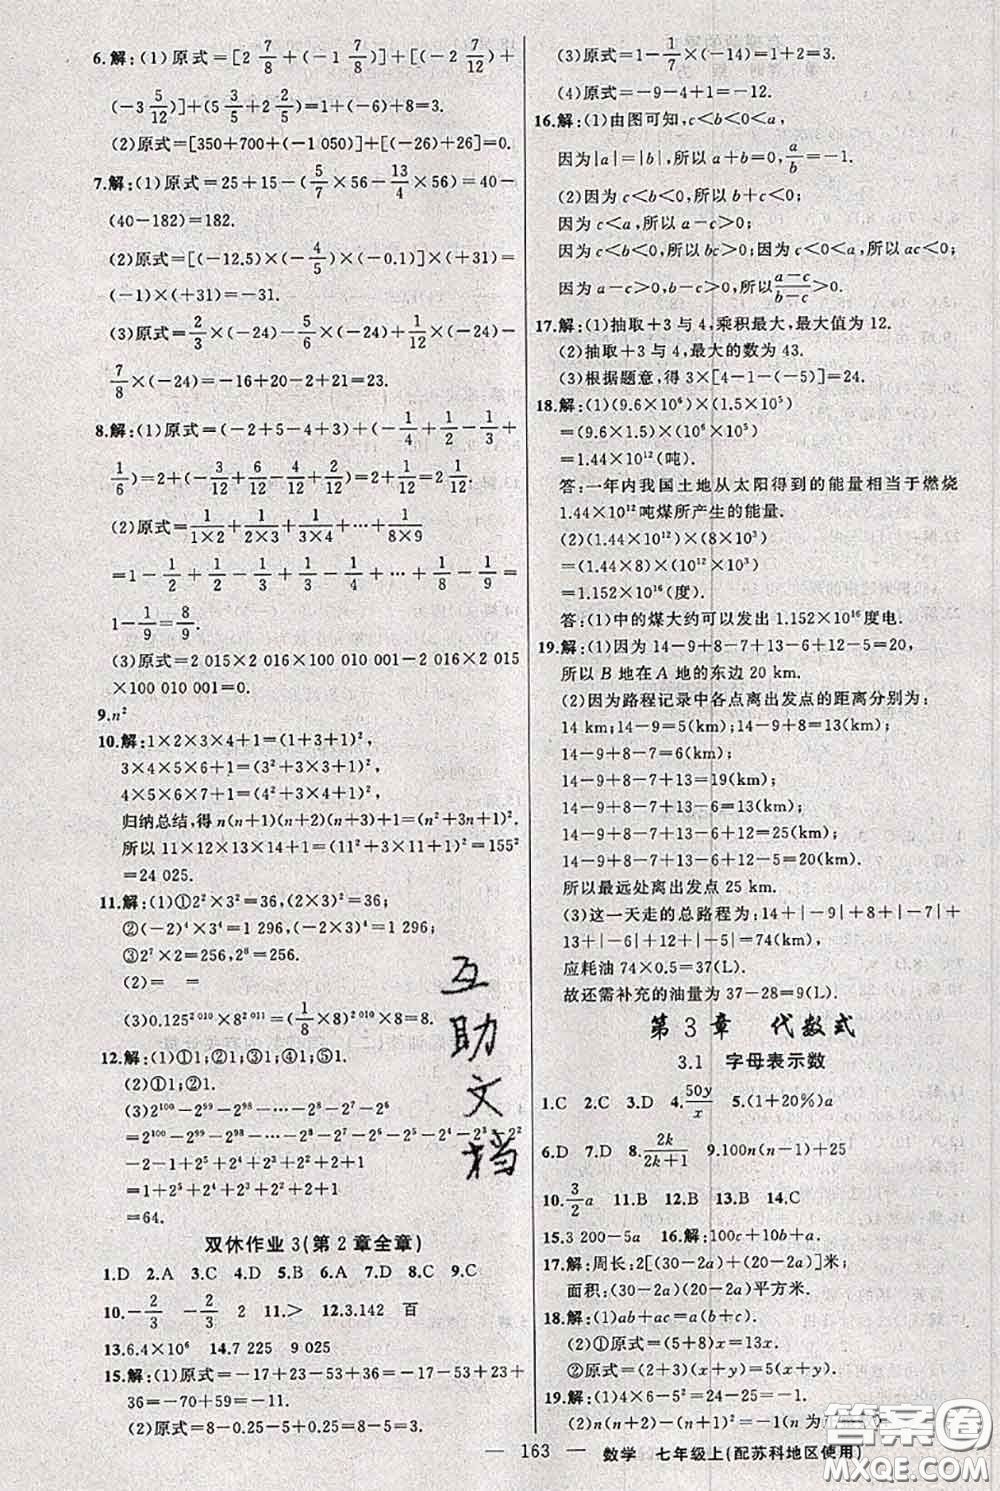 6.解:(1)原式=[2 7/8+(-1 7/8)]+[(-2 7/12)+
(-3 5/12)]+(5 3/5+2 2/5)=1-6+8=3.
(2)原式=[350+700+(-1 050)]+[26+(-26)]=0.
7.解:(1)原式=25+15-(5/7×56-13/4×56)=40-
(40-182)=182.
(2)原式=[(-12.5)×(-4/5)×(-0.1)]×(+31)=
(-1)×(+31)=-31.
(3)原式=2/3×(-24)-5/6×(-24)+1/12×(-24)-
7/8×(-24)=-16+20-2+21=23.
8.解:(1)原式=(-2+5-4+3)+(-1/4+1/2-1/3+
1/6)=2+(-3/12+6/12-4/12+2/12)=2+1/12=2 1/12.
(2)原式=1/1×2+1/2×3+1/3×4+…+1/8×9
=1-1/2+1/2-1/3+1/3-1/4+…+1/8-1/9=
1-1/9=8/9.
(3)原式=2 015×2 016×100 010 001-2 016×2 015
×100 010 001=0.
9.n²
10.解:1×2×3×4+1=(1+3+1)²,
3×4×5×6+1=(3²+3×3+1)²,
4×5×6×7+1=(4²+3×4+1)²,
归纳总结,得n(n+1)(n+2)(n+3)+1=(n²+3n+1)².
所以11×12×13×14+1=(11²+3×11+1)²=155²
=24 025.
11.解:(1)①2²×3²=36;(2×3)²=36;
②(-2)⁴×3⁴=1 296,(-2×3)⁴=1 296;
③2⁷×2=256,2⁸=256.
(2)= =
(3)0.125²⁰¹⁰×8²⁰¹¹=(1/8×8)²⁰¹⁰×8=8.
12.解:(1)①1;②1;③1;④1;⑤1.
(2)①1;②1.
(3)2¹⁰⁰-2⁹⁹-2⁹⁸-…-2⁸-2⁷-2⁶
=2¹⁰⁰-2⁹⁹-2⁹⁸-…-2⁸-2⁷-2⁶-2⁵-2⁴-2³-2²
-2-1+2⁵+2⁴+2³+2²+2+1
=1+2⁵+2⁴+2³+2²+2+1
=64.
双休作业3(第2章全章)
1.D 2.A 3.C 4.D 5.B 6.A 7.D 8.C 9.C
10.-2/3 -2/3 2 11.> 12.3.142 百
13.6.4×10⁶ 14.7 225 9 025
15.解:(1)原式=-17+23-53+36=-17-53+23+
36=-70+59=-11.
(2)原式=8-0.25-5+0.25=8-5=3.
(3)原式=-1-1/7×(-14)=1+2=3.
(4)原式=-9-4+1=-12.
16.解:(1)由图可知,c<b<0<a,
因为|a|=|b|,所以a+b=0,a/b=-1.
(2)因为c<b<0,所以b+c<0;
因为c<a,所以a-c>0;
因为c<b<0,所以bc>0;因为c<0<a,所以ac<0;
因为a-c>0,b-c>0,所以a-c/b-c>0.
17.解:(1)抽取+3与4,乘积最大,最大值为12.
(2)抽取+3与4,最大的数为43.
(3)根据题意,得3×[4-1-(-5)]=24.
18.解:(1)(9.6×10⁶)×(1.5×10⁵)
=(9.6×1.5)×(10⁶×10⁵)
=1.44×10¹²(吨).
答:一年内我国土地从太阳得到的能量相当于燃烧
1.44×10¹²吨煤所产生的能量.
(2)(1.44×10¹²)×(8×10³)
=(1.44×8)×(10¹²×10³)
=1.152×10¹⁶(度).
答:(1)中的煤大约可以发出1.152×10¹⁶度电.
19.解:(1)因为14-9+8-7+13-6+12-5=20,
所以B地在A地的东边20 km.
(2)因为路程记录中各点离出发点的距离分别为:
14 km;14-9=5(km);14-9+8=13(km);
14-9+8-7=6(km);
14-9+8-7+13=19(km);
14-9+8-7+13-6=13(km);
14-9+8-7+13-6+12=25(km);
14-9+8-7+13-6+12-5=20(km).
所以最远处离出发点25 km.
(3)这一天走的总路程为:14+|-9|+8+|-7|+
13+|-6|+12+|-5|=74(km),
应耗油74×0.5=37(L).
故还需补充的油量为37-28=9(L).
第3章 代数式
3.1 字母表示数
1.C 2.C 3.D 4.50y/x 5.(1+20%)a
6.D 7.D 8.2k/2k+1 9.100n(n-1)+25
10.3/2a 11.B 12.B 13.B 14.C
15.3 200-5a 16.解:100c+10b+a.
17.解:周长:2[(30-2a)+(20-2a)]米;
面积:(30-2a)(20-2a)平方米.
18.解:(1)ab+ac=a(b+c).
(2)①原式=(5+8)x=13x.
②原式=(2+3)(x+y)=5(x+y).
19.解:(1)4×6-5²=24-25=-1.
(2)n(n+2)-(n+1)²=-1(n
互助文档
答案圈
MXQE.COM
— 163 — 数学 七年级上(配苏科地区使用)